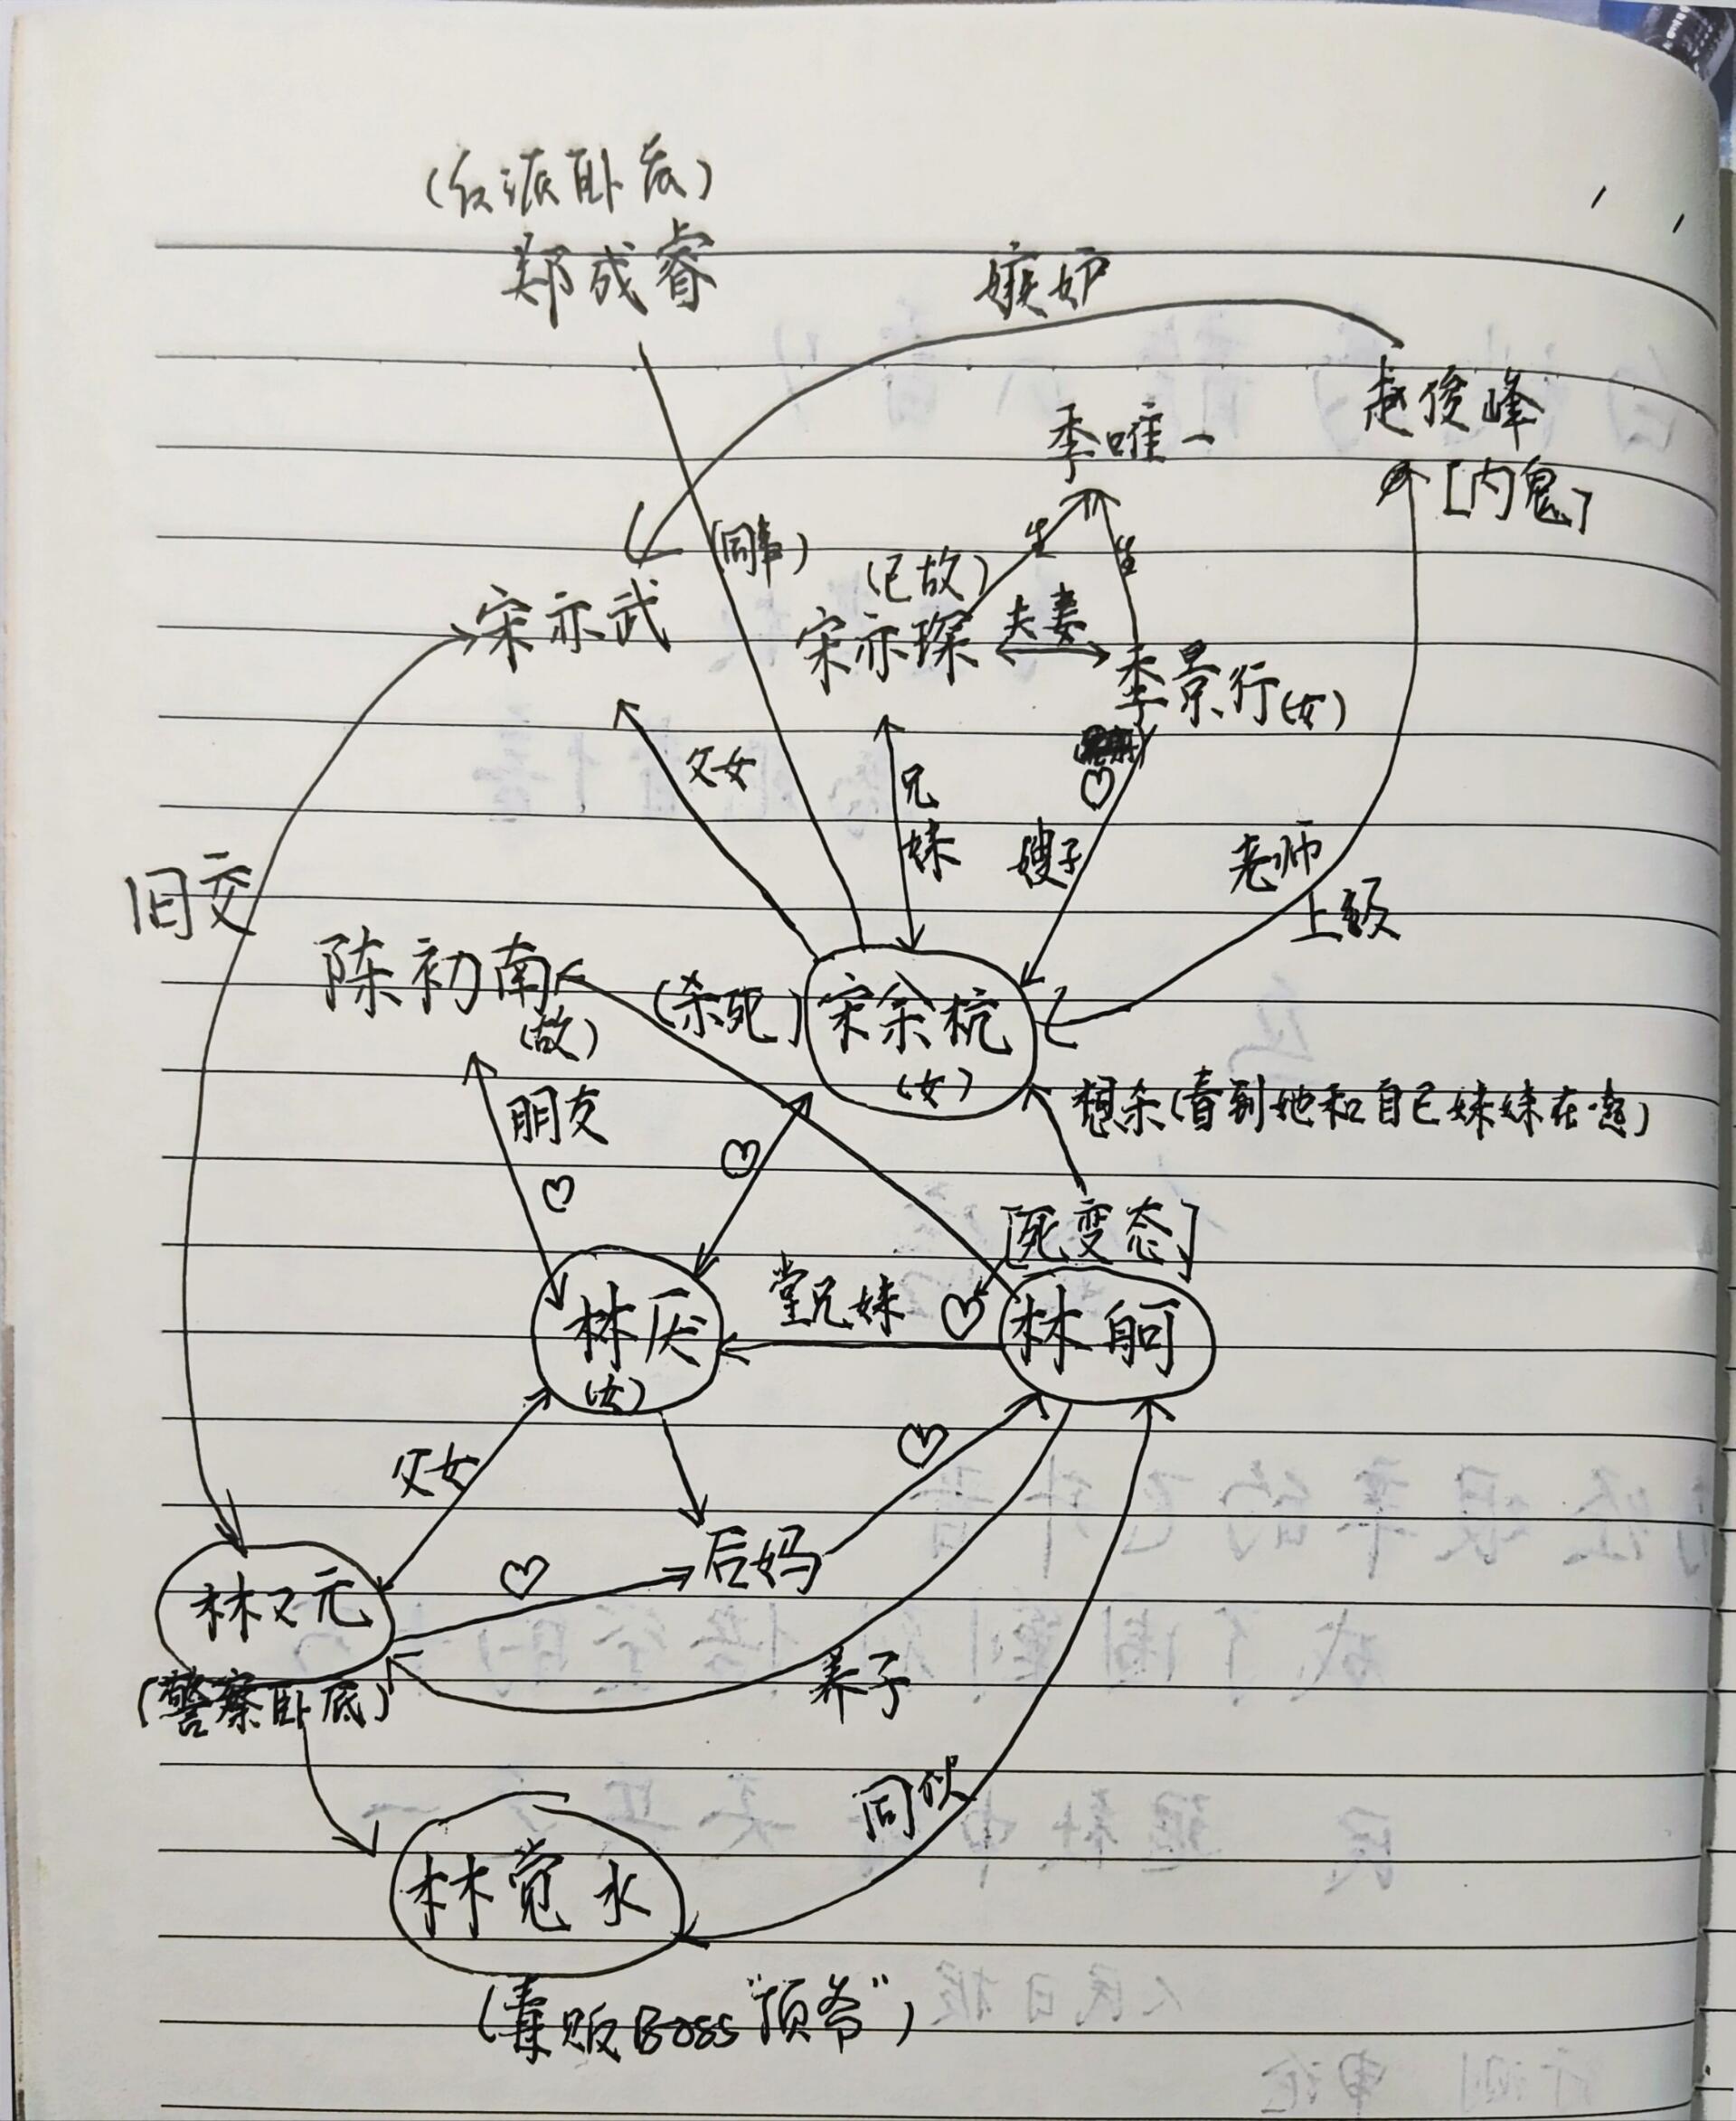 (反派卧底)
郑成睿
嫉妒
赵俊峰
[内鬼]
季唯一
生
生
(同事)
(已故)
宋亦武
宋亦琛
夫妻
季景行(女)
父女
兄妹
嫂子
老师
上级
旧交
陈初南
(故)
(杀死)
宋余杭
(女)
朋友
想杀(看到她和自己妹妹在一起)
[死变态]
堂兄妹
林厌
(女)
林舸
父女
后妈
林又元
(警察卧底)
养子
同伙
林觉水
(毒贩Boss"顶爷")